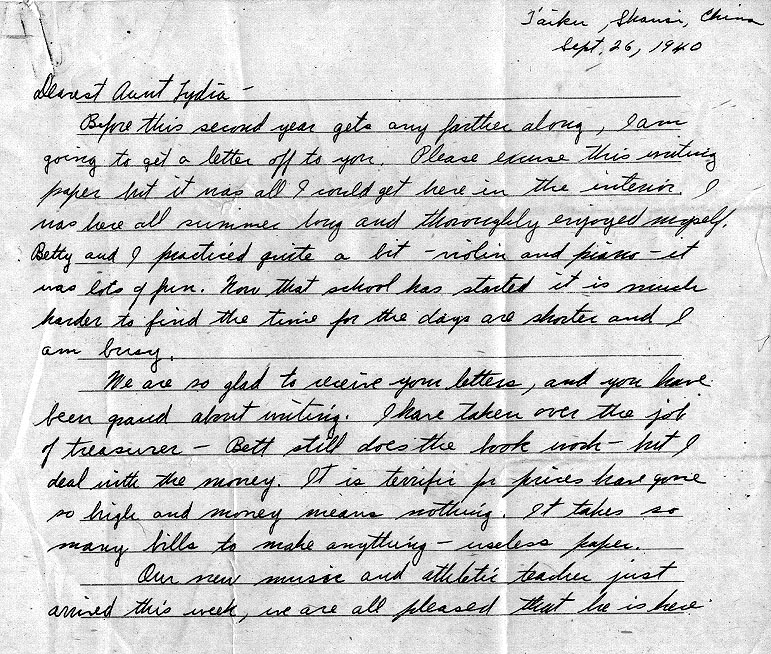 Taiku, Shansi, China
Sept. 26, 1940
Dearest Aunt Lydia -
Before this second year gets any farther along, I am
going to get a letter off to you. Please excuse this writing
paper but it was all I could get here in the interior. I
was here all summer long and thoroughly enjoyed myself.
Betty and I practiced quite a bit - violin and piano - it
was lots of fun. Now that school has started it is much
harder to find the time for the days are shorter and I
am busy.
We are so glad to receive your letters, and you have
been grand about writing. I have taken over the job
of treasurer - Bett still does the book work - but I
deal with the money. It is terrific for prices have gone
so high and money means nothing. It takes so
many bills to make anything - useless paper.
Our new music and athletic teacher just
arrived this week, we are all pleased that he is here